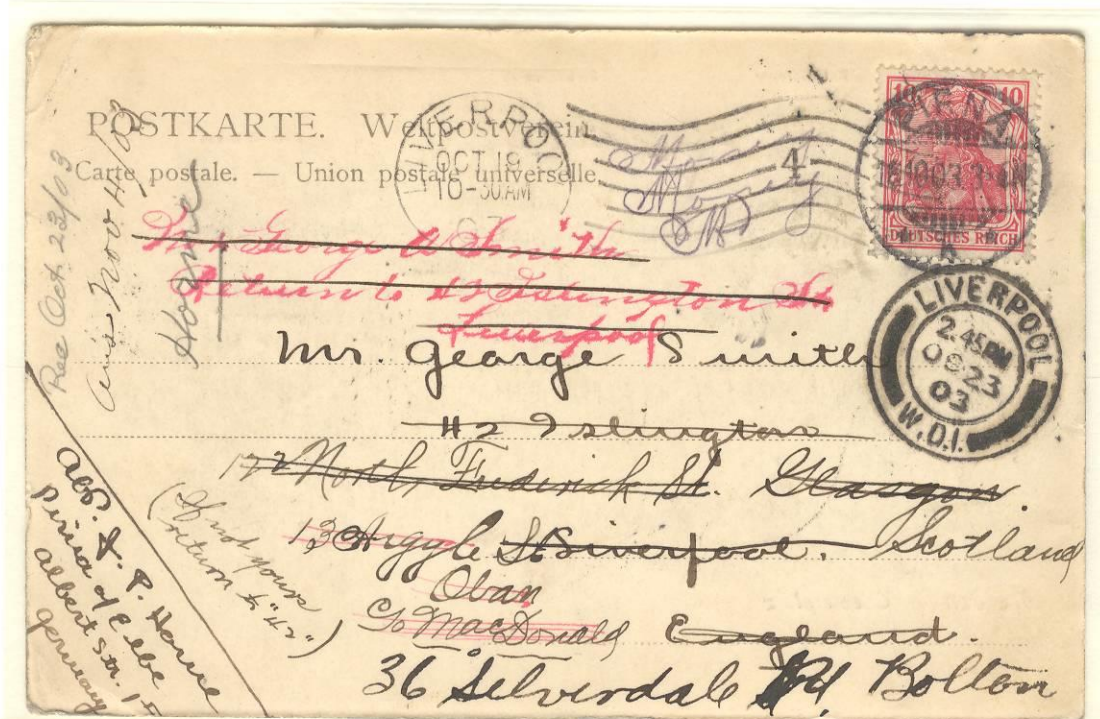 POSTKARTE. Weltpostverein.
Carte postale. — Union postale universelle.
LIVERPOO
OCT 19
10-30AM
03
4
10 10
DEUTSCHES REICH
10.03.
LIVERPOOL
2.45PM
OC 23
03
W.D.I.
Rec Oct 23/03
ans Nov 4/03
Horne
Mr George A Smith
Return to 42 Islington
Liverpool
Mr. George Smith
42 Islington
North Frederick St. Glasgow.
13 Argyle St Liverpool. Scotland
Oban
C/o MacDonald England.
36 Silverdale Rd Bolton
(If not yours
return to "42")
Abs. J. P. Horne
Pirna a/ Elbe
Albert Str. 1
Germany